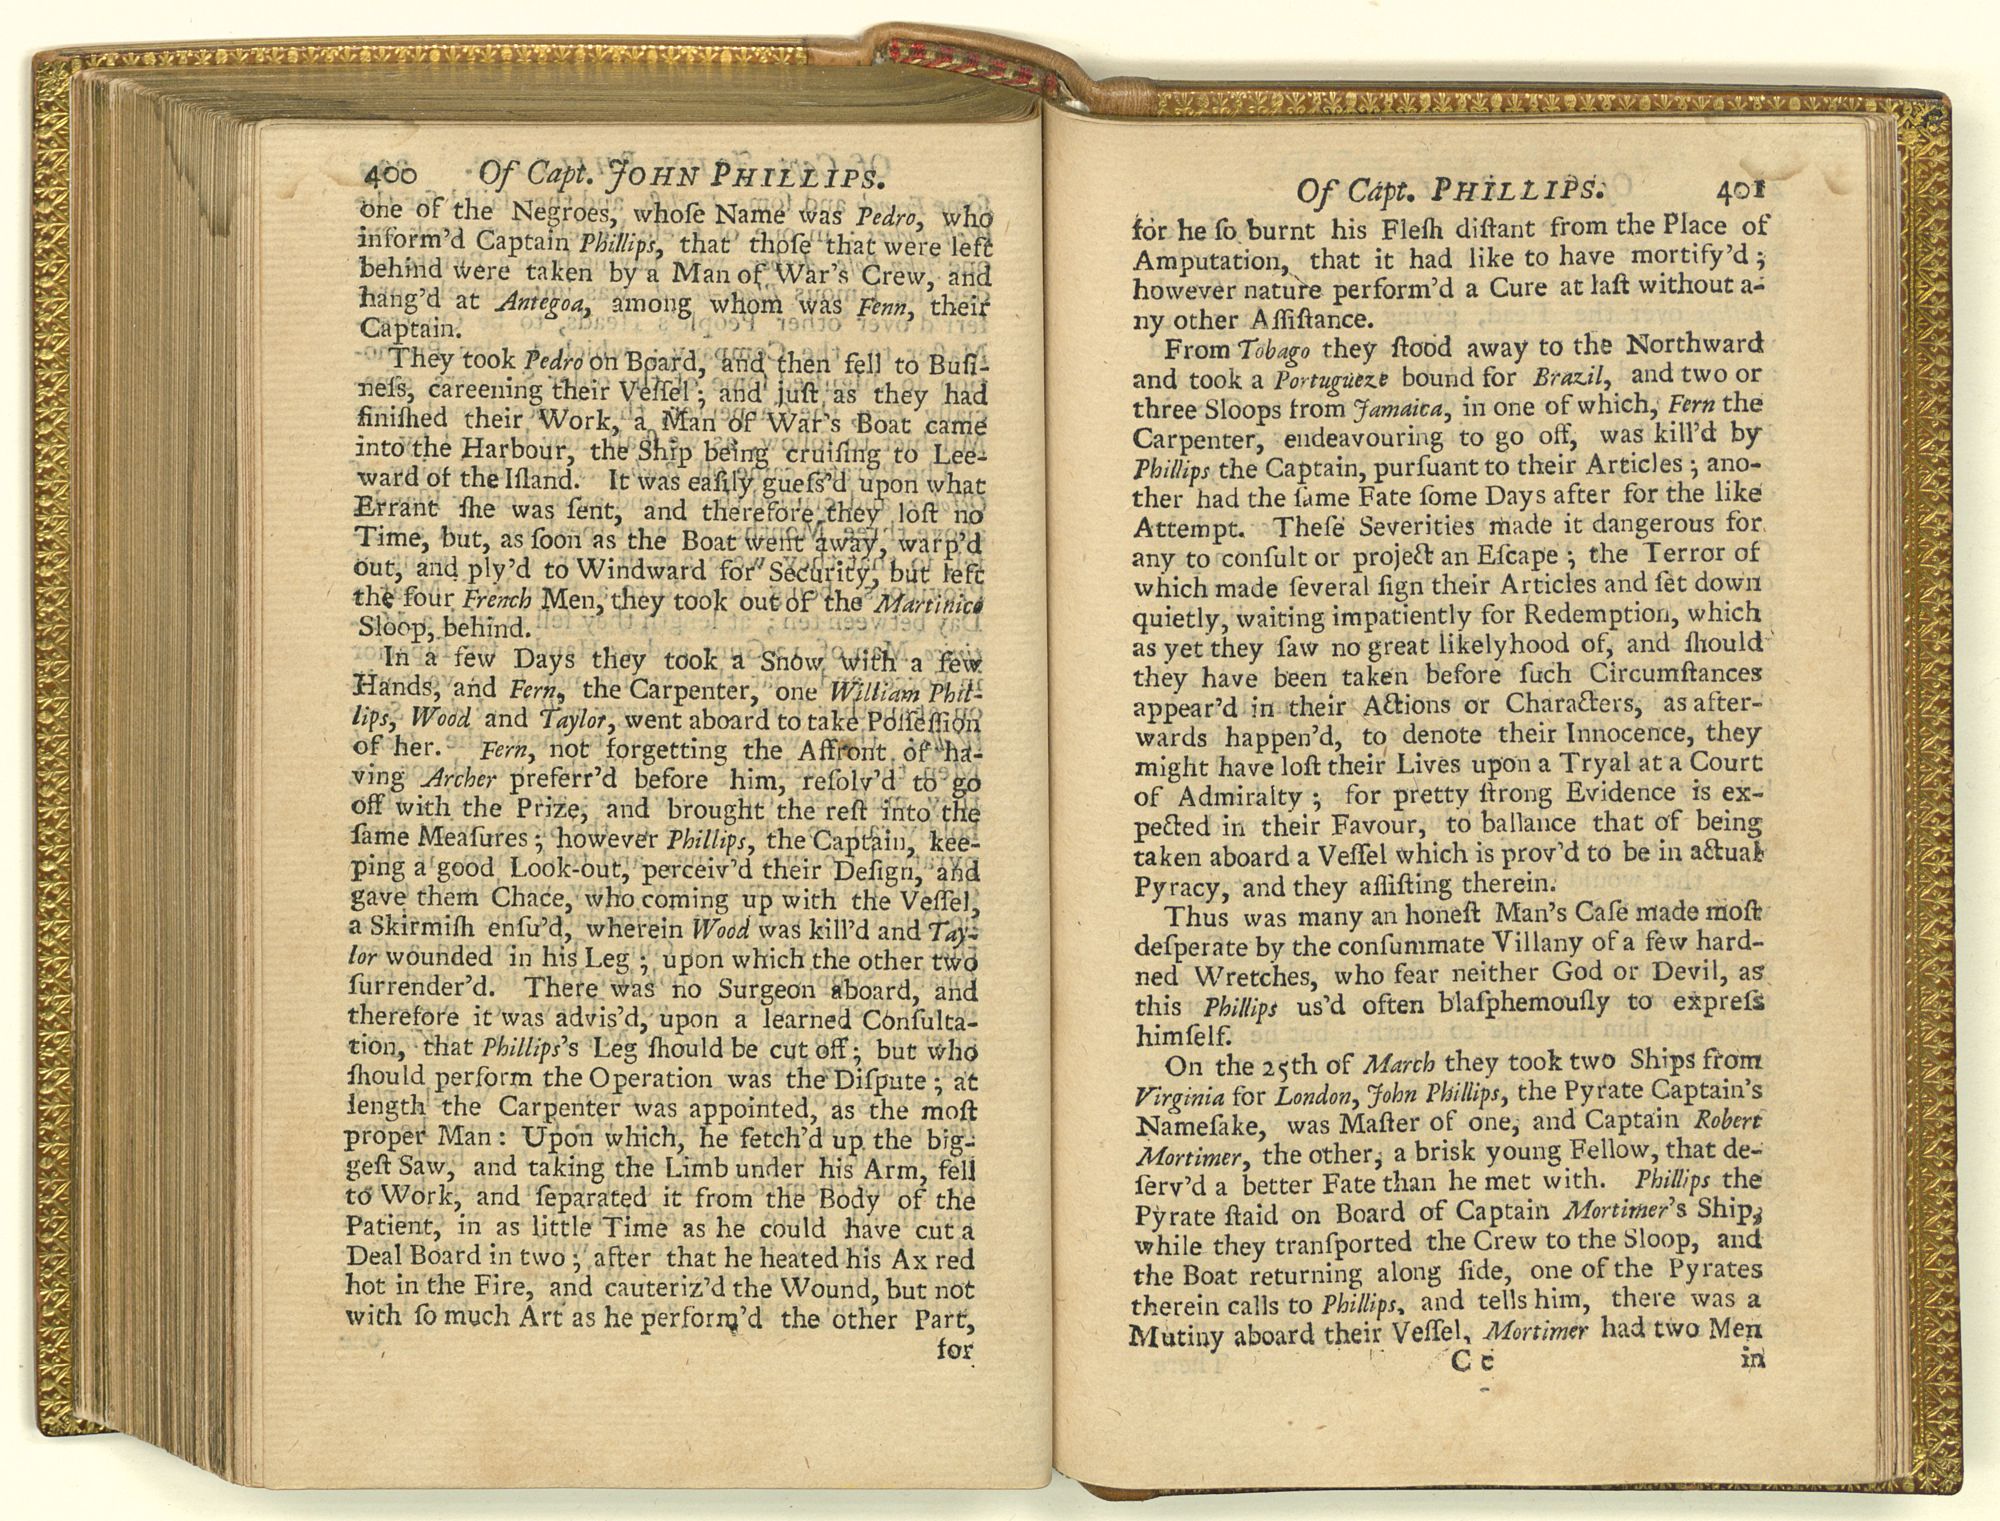 400 Of Capt. JOHN PHILLIPS.
one of the Negroes, whoſe Name was Pedro, who
inform'd Captain Phillips, that thoſe that were left
behind were taken by a Man of War's Crew, and
hang'd at Antegoa, among whom was Fenn, their
Captain.
They took Pedro on Board, and then fell to Buſi-
neſs, careening their Veſſel; and juſt as they had
finiſhed their Work, a Man of War's Boat came
into the Harbour, the Ship being cruiſing to Lee-
ward of the Iſland. It was eaſily gueſs'd upon what
Errant ſhe was ſent, and therefore they loſt no
Time, but, as ſoon as the Boat went away, warp'd
out, and ply'd to Windward for Security, but left
the four French Men, they took out of the Martinico
Sloop, behind.
In a few Days they took a Snow with a few
Hands, and Fern, the Carpenter, one William Phil-
lips, Wood and Taylor, went aboard to take Poſſeſſion
of her. Fern, not forgetting the Affront of ha-
ving Archer preferr'd before him, reſolv'd to go
off with the Prize, and brought the reſt into the
ſame Meaſures; however Phillips, the Captain, kee-
ping a good Look-out, perceiv'd their Deſign, and
gave them Chace, who coming up with the Veſſel,
a Skirmiſh enſu'd, wherein Wood was kill'd and Tay-
lor wounded in his Leg; upon which the other two
ſurrender'd. There was no Surgeon aboard, and
therefore it was advis'd, upon a learned Conſulta-
tion, that Phillips's Leg ſhould be cut off; but who
ſhould perform the Operation was the Diſpute; at
length the Carpenter was appointed, as the moſt
proper Man: Upon which, he fetch'd up the big-
geſt Saw, and taking the Limb under his Arm, fell
to Work, and ſeparated it from the Body of the
Patient, in as little Time as he could have cut a
Deal Board in two; after that he heated his Ax red
hot in the Fire, and cauteriz'd the Wound, but not
with ſo much Art as he perform'd the other Part,
for
Of Capt. PHILLIPS. 401
for he ſo burnt his Fleſh diſtant from the Place of
Amputation, that it had like to have mortify'd;
however nature perform'd a Cure at laſt without a-
ny other Aſſiſtance.
From Tobago they ſtood away to the Northward
and took a Portugueze bound for Brazil, and two or
three Sloops from Jamaica, in one of which, Fern the
Carpenter, endeavouring to go off, was kill'd by
Phillips the Captain, purſuant to their Articles; ano-
ther had the ſame Fate ſome Days after for the like
Attempt. Theſe Severities made it dangerous for
any to conſult or project an Eſcape; the Terror of
which made ſeveral ſign their Articles and ſet down
quietly, waiting impatiently for Redemption, which
as yet they ſaw no great likelyhood of, and ſhould
they have been taken before ſuch Circumſtances
appear'd in their Actions or Characters, as after-
wards happen'd, to denote their Innocence, they
might have loſt their Lives upon a Tryal at a Court
of Admiralty; for pretty ſtrong Evidence is ex-
pected in their Favour, to ballance that of being
taken aboard a Veſſel which is prov'd to be in actual
Pyracy, and they aſſiſting therein.
Thus was many an honeſt Man's Caſe made moſt
deſperate by the conſummate Villany of a few hard-
ned Wretches, who fear neither God or Devil, as
this Phillips us'd often blaſphemouſly to expreſs
himſelf.
On the 25th of March they took two Ships from
Virginia for London, John Phillips, the Pyrate Captain's
Nameſake, was Maſter of one, and Captain Robert
Mortimer, the other, a brisk young Fellow, that de-
ſerv'd a better Fate than he met with. Phillips the
Pyrate ſtaid on Board of Captain Mortimer's Ship,
while they tranſported the Crew to the Sloop, and
the Boat returning along ſide, one of the Pyrates
therein calls to Phillips, and tells him, there was a
Mutiny aboard their Veſſel, Mortimer had two Men
C c in